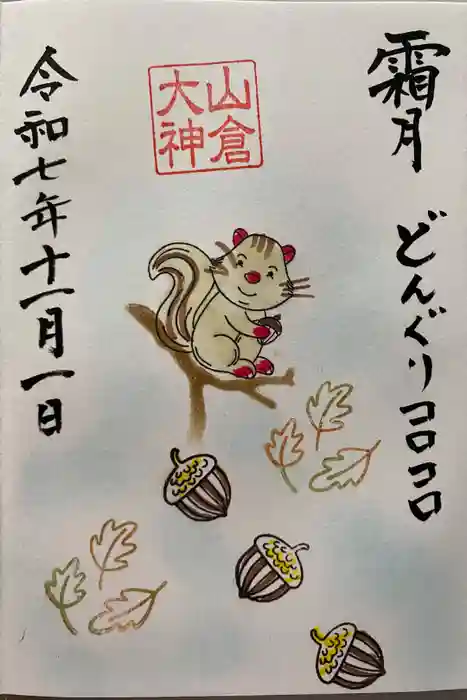 霜月 どんぐりコロコロ
山倉
大神
令和七年十一月一日